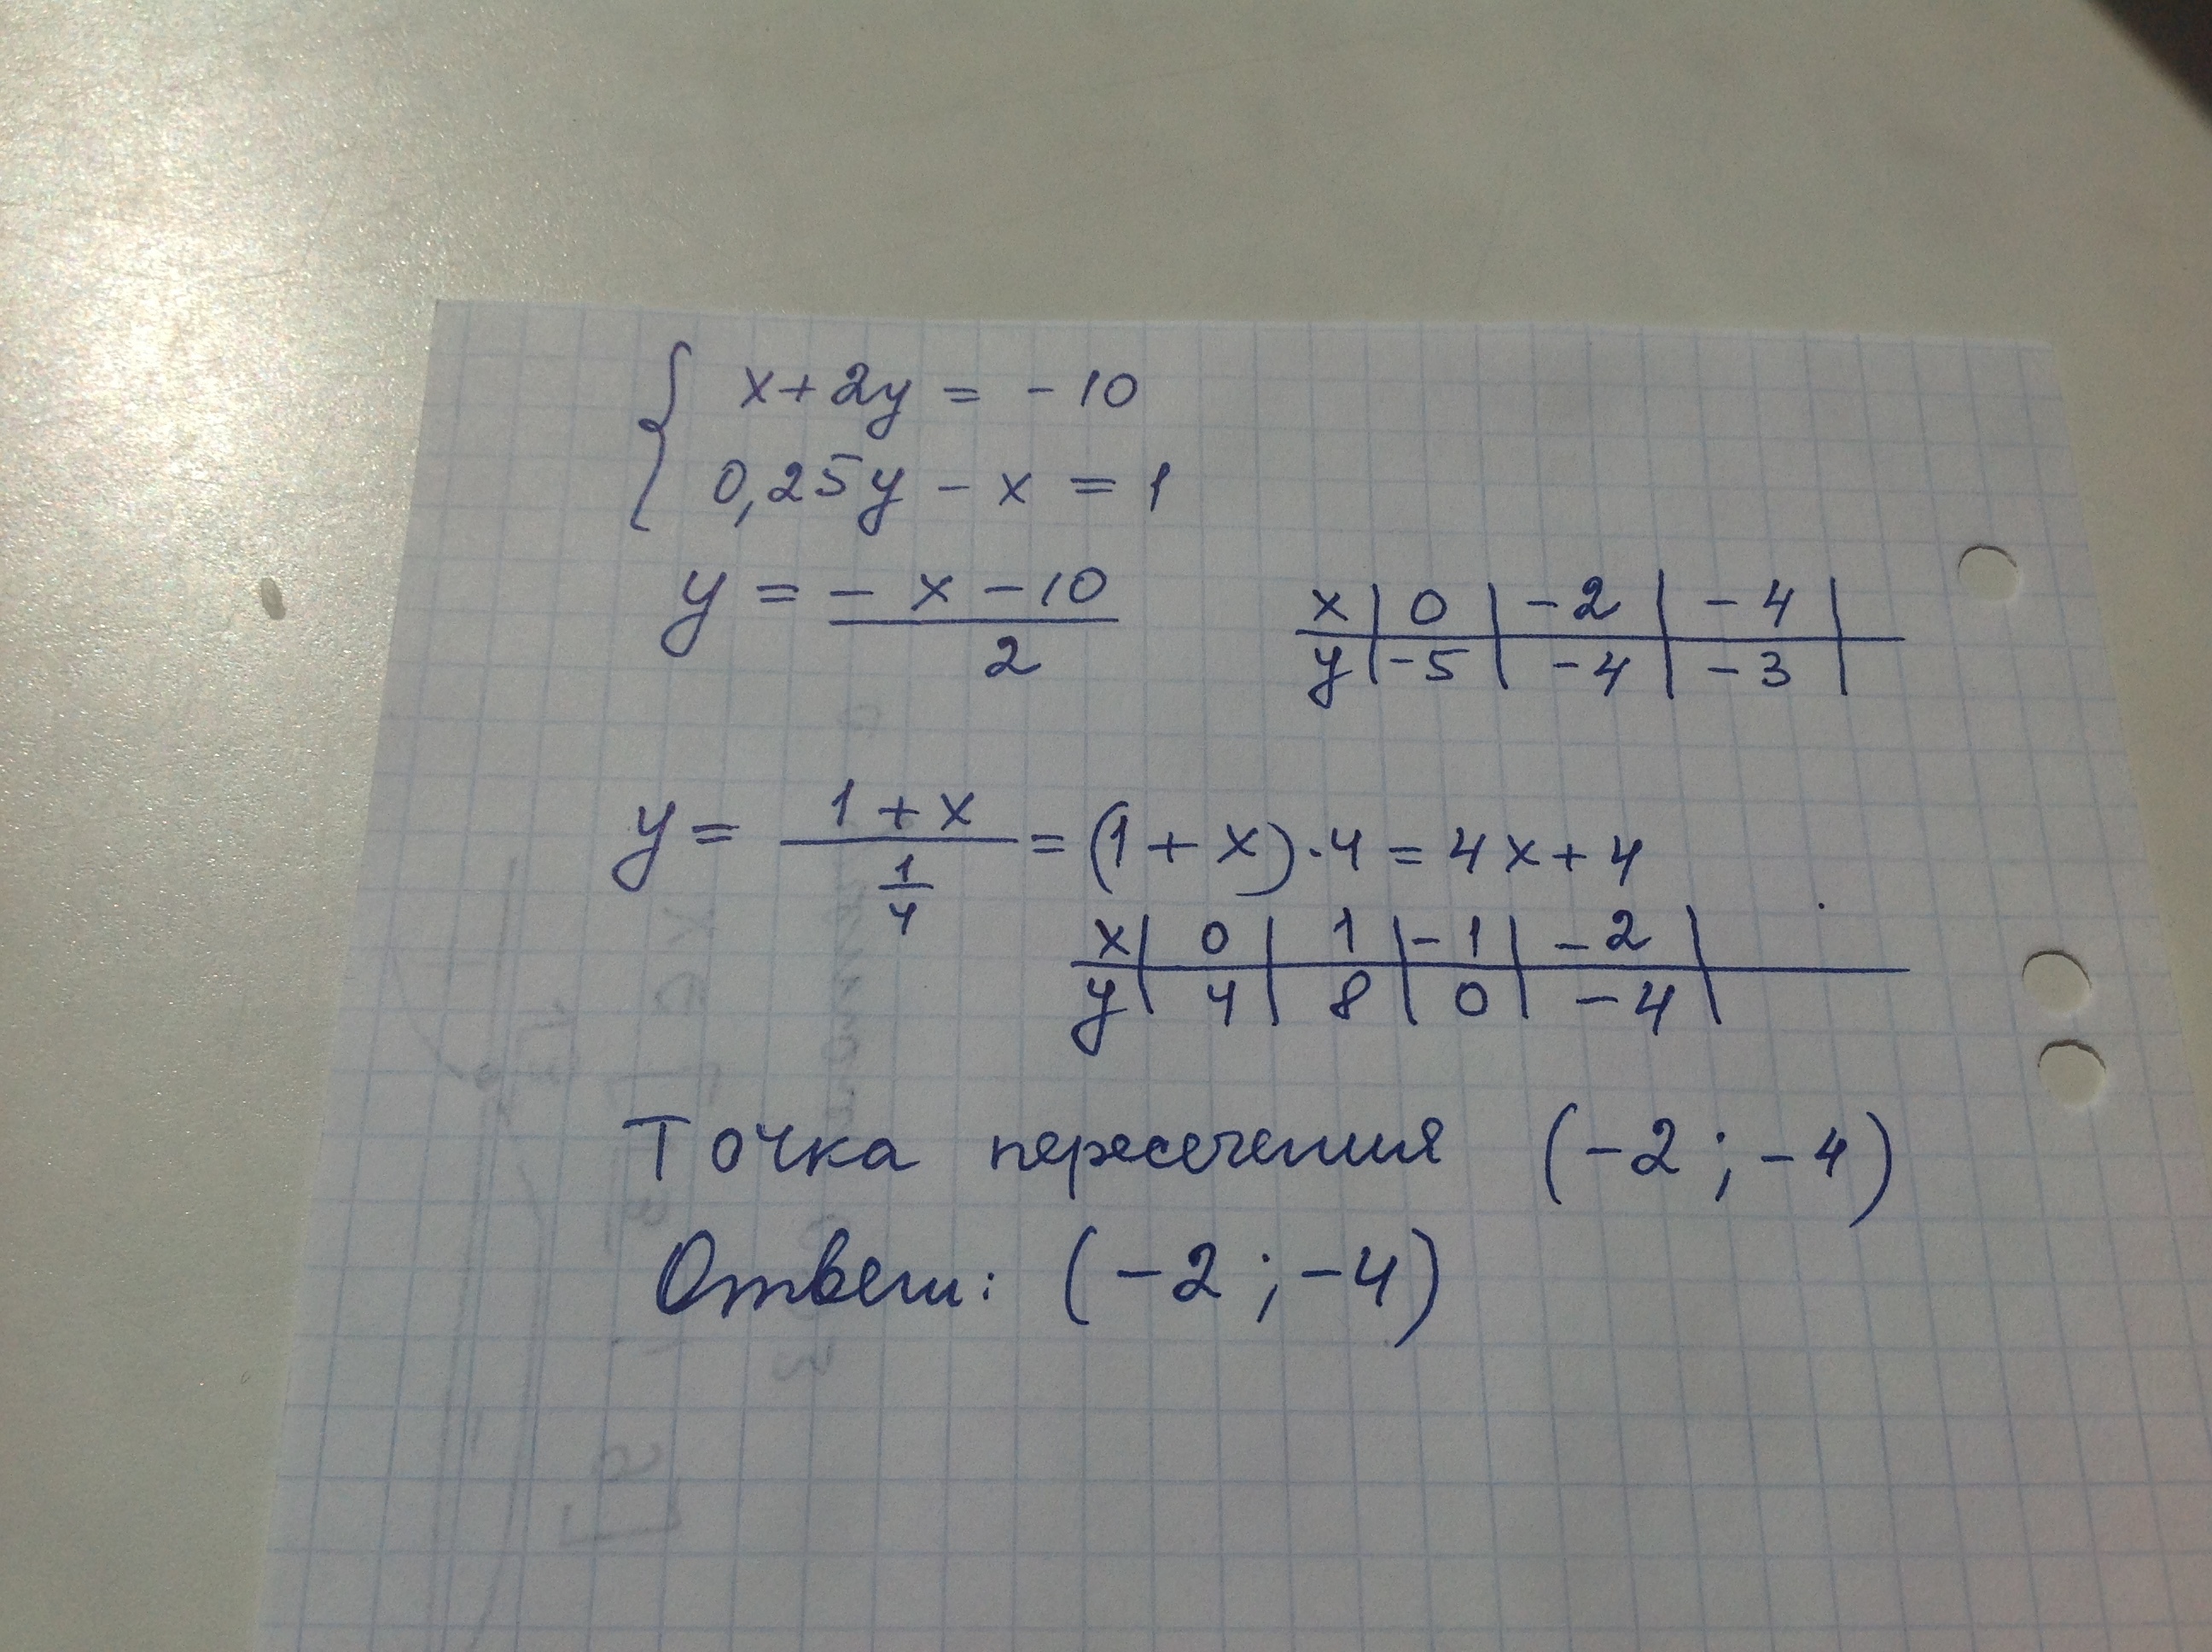 x + 2y = -10
0,25y - x = 1
y = (-x - 10)/2
x | 0 | -2 | -4 |
y | -5 | -4 | -3 |
y = (1 + x)/(1/4) = (1 + x) · 4 = 4x + 4
x | 0 | 1 | -1 | -2 |
y | 4 | 8 | 0 | -4 |
Точка пересечения (-2 ; -4)
Ответ: (-2 ; -4)